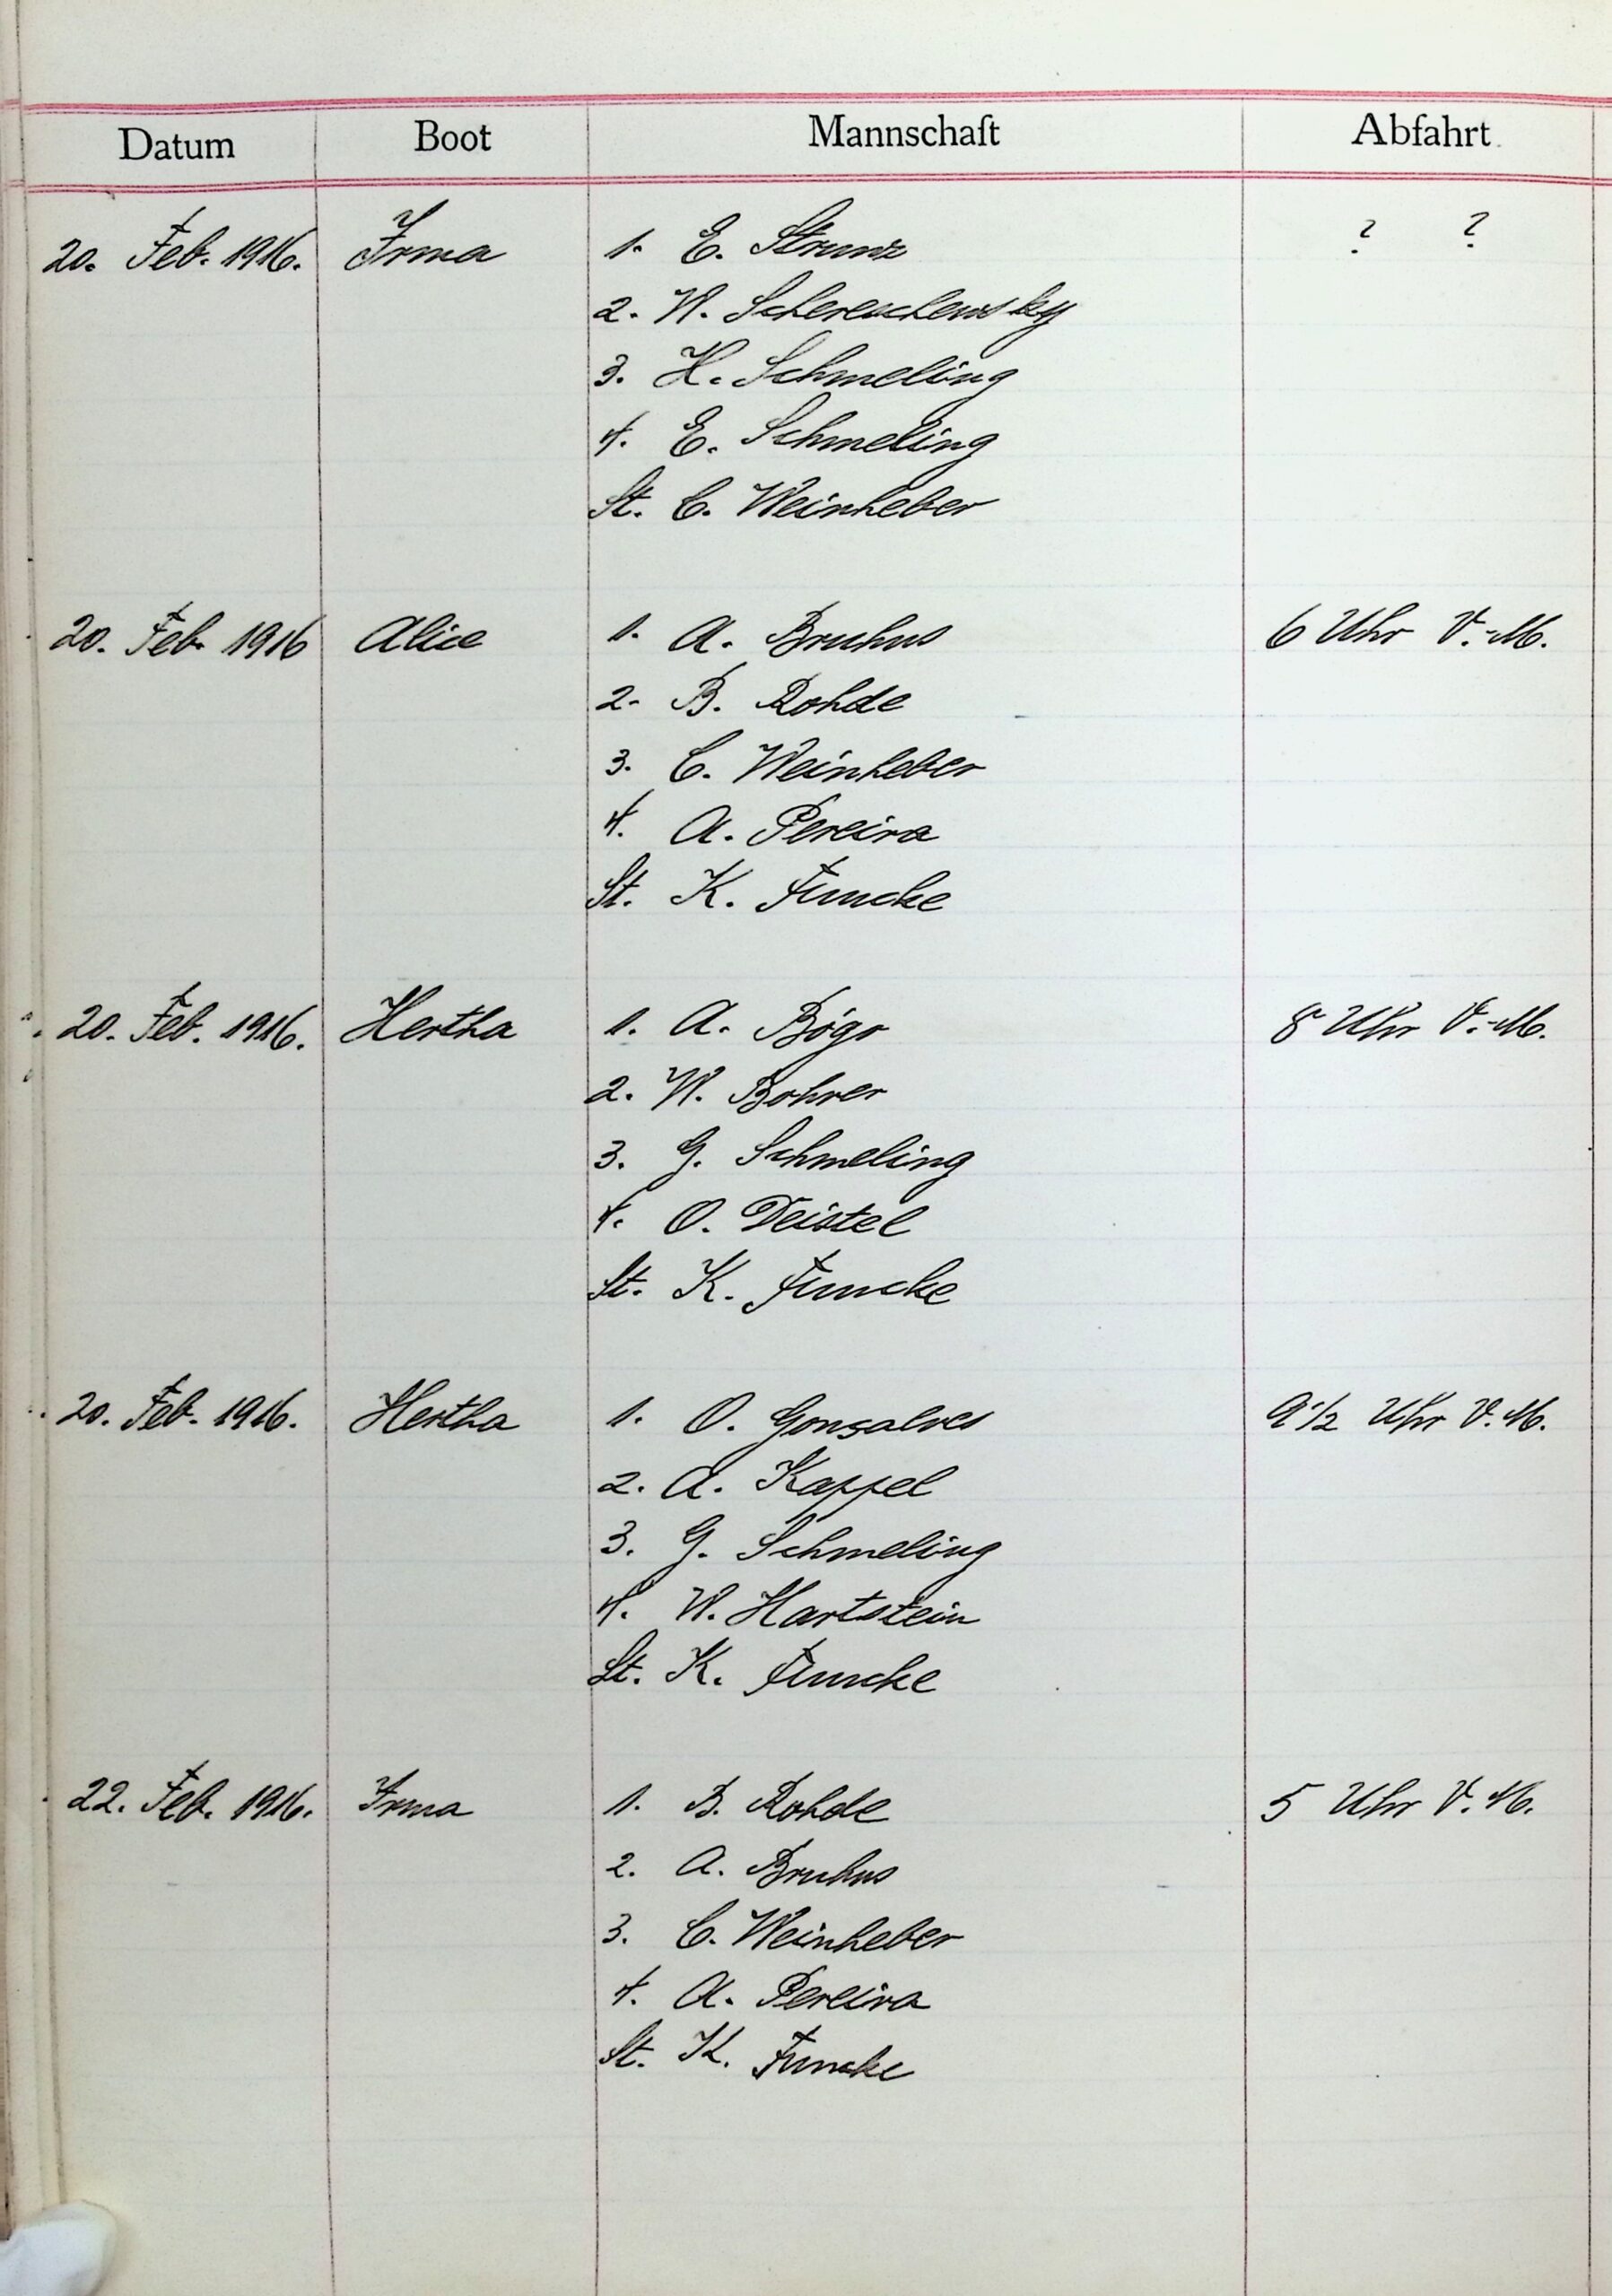 Datum Boot Mannschaft Abfahrt
20. Feb. 1916. Irma 1. E. Strunz ? ?
2. W. Schereschewsky
3. H. Schmeling
4. E. Schmeling
St. C. Weinheber
20. Feb. 1916 Alice 1. A. Bruhns 6 Uhr V.-M.
2. B. Rohde
3. C. Weinheber
4. A. Pereira
St. K. Funcke
20. Feb. 1916. Hertha 1. A. 8 Uhr V.-M.
2. W. Bohrer
3. G. Schmeling
4. O. Deistel
St. K. Funcke
20. Feb. 1916. Hertha 1. O. Gonsalves 9 1/2 Uhr V.M.
2. A. Kappel
3. G. Schmeling
4. W. Hartstein
St. K. Funcke
22. Feb. 1916. Irma 1. B. Rohde 5 Uhr V.M.
2. A. Bruhns
3. C. Weinheber
4. A. Pereira
St. K. Funcke